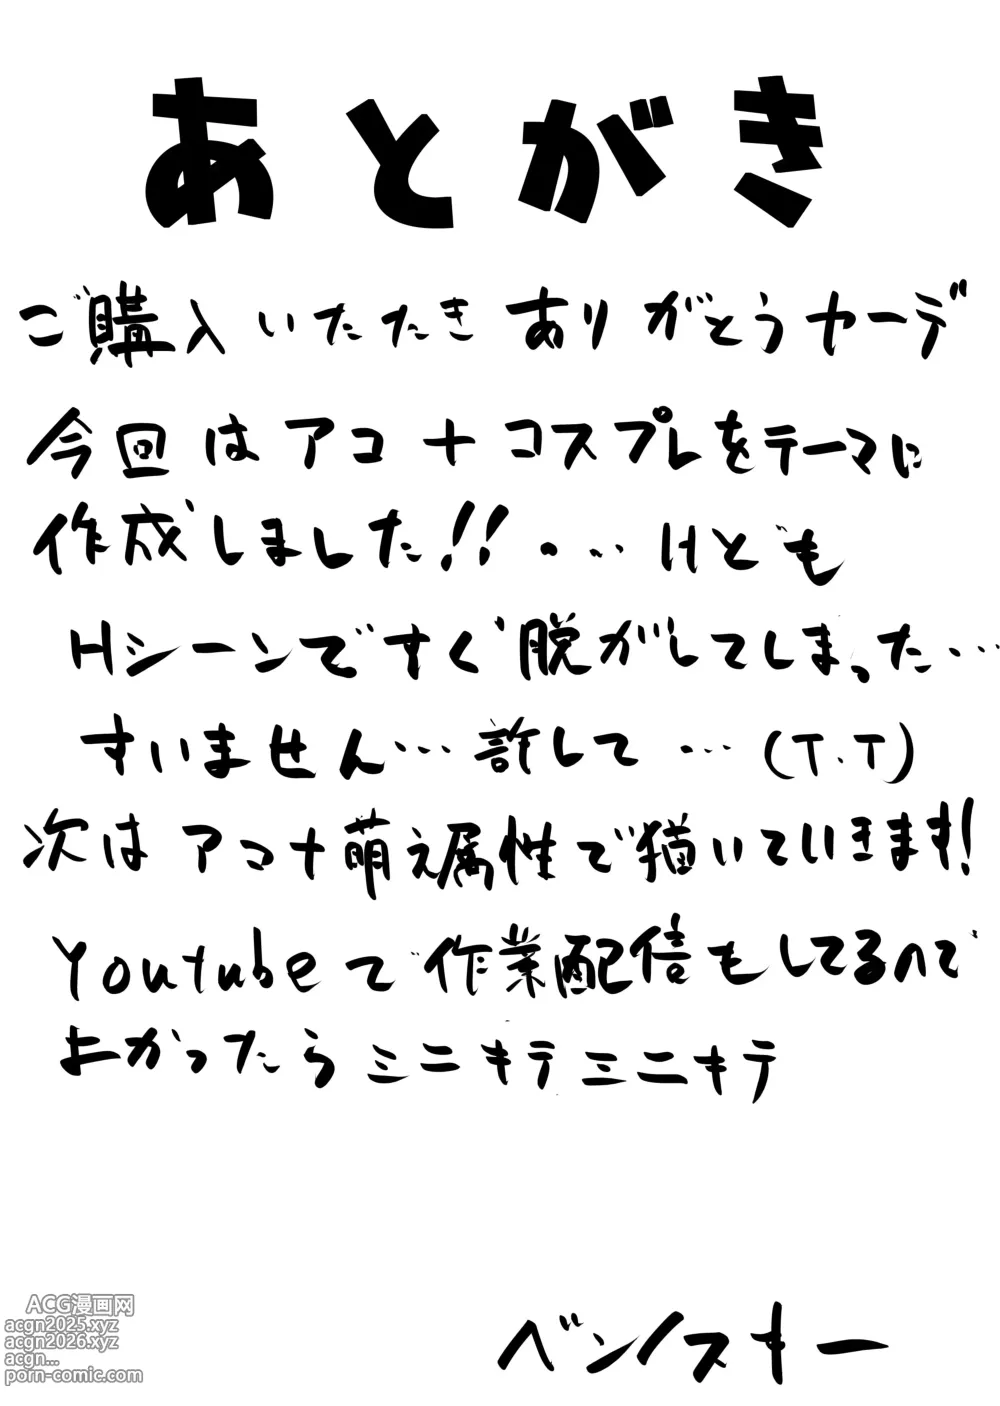 あとがき
ご購入いたたきありがとうヤーデ
今回はアコナコスプレをテーマに
作成しました!!・・・Hども
Hシーンですぐ脱がしてしまった・・・
すいません・・・許して・・・(T.T)
次はアコナ萌え属性で描いていきます!
Youtubeで作業配信もしてるので
よかったらミニキテミニキテ
ベンノスキー
ACG漫画网
acgn2025.xyz
acgn2026.xyz
acgn...
porn-comic.com